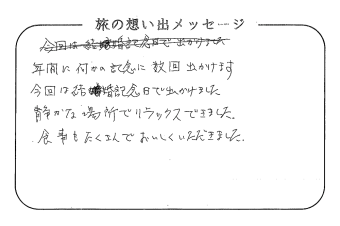 旅の想い出メッセージ
今回は結婚記念日で出かけました
年間に何かの記念に数回出かけます
今回は結婚記念日で出かけました
静かな場所でリラックスできました。
食事もたくさんでおいしくいただきました。